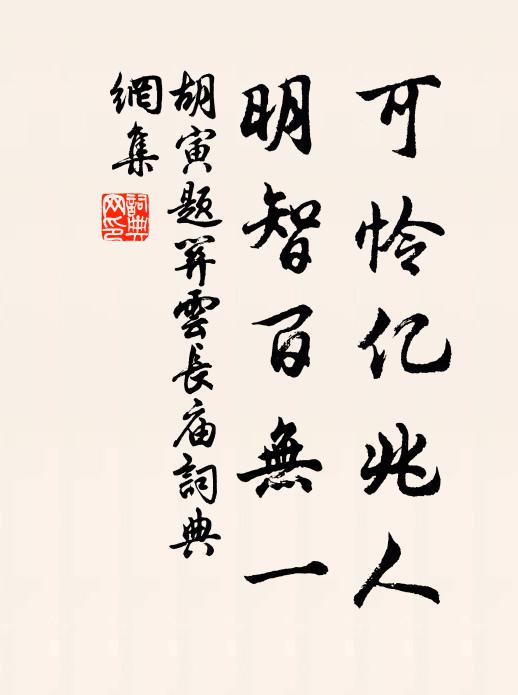 可怜亿兆人
明智百無一
胡寅题关雲長庙詞典
網集
詞典
网印